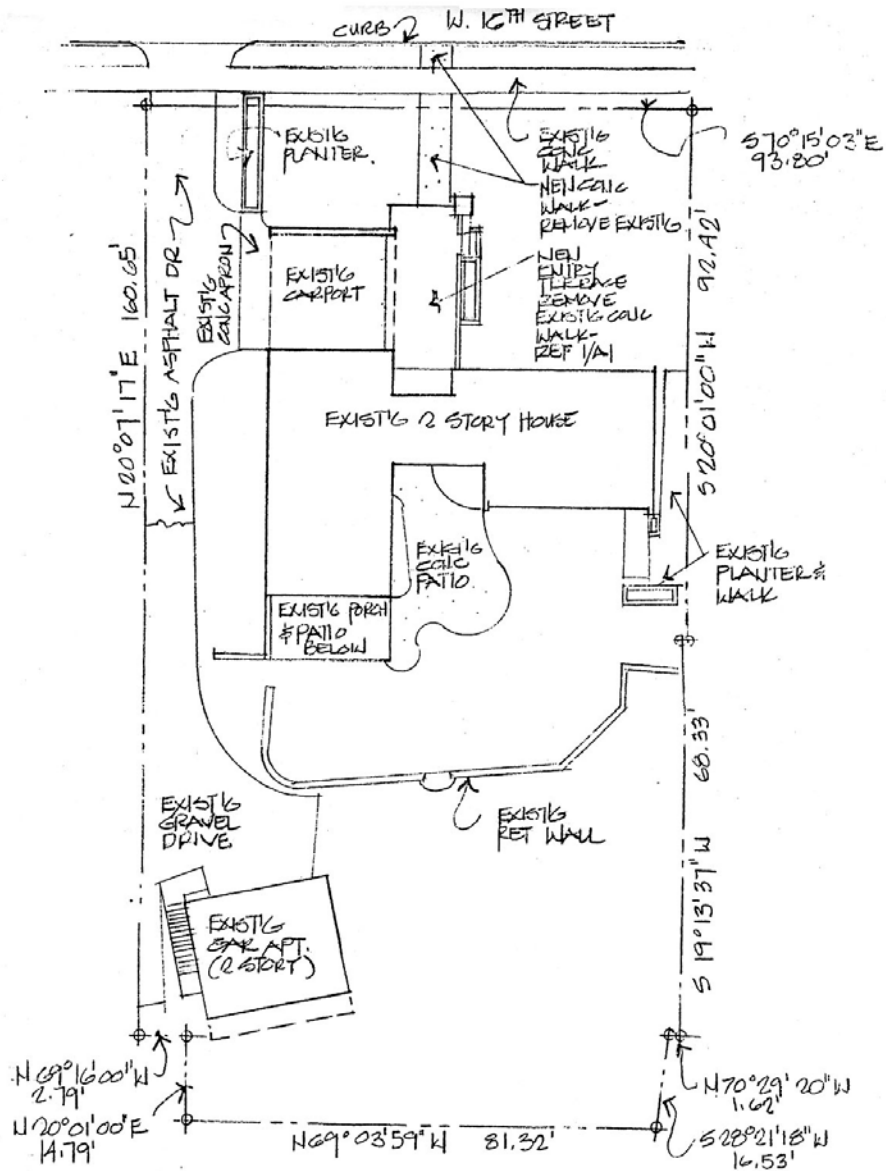 CURB
W. 16TH STREET
EXIST'G
PLANTER.
EXIST'G
CONC
WALK
NEW CONC
WALK-
REMOVE EXIST'G
S 70°15'03"E
93.80'
N 20°07'17"E 160.65'
EXIST'G ASPHALT DR
EXIST'G
CONC APRON
EXIST'G
CARPORT
NEW
ENTRY
TERRACE
REMOVE
EXIST'G CONC
WALK-
REF 1/A1
S 20°01'00"W 92.42'
EXIST'G 2 STORY HOUSE
EXIST'G
CONC
PATIO
EXIST'G
PLANTER &
WALK
EXIST'G PORCH
& PATIO
BELOW
EXIST'G
GRAVEL
DRIVE
EXIST'G
RET WALL
S 19°13'37"W 68.33'
EXIST'G
GAR APT.
(2 STORY)
N 69°16'00"W
2.79'
N 20°01'00"E
14.79'
N 69°03'59"W 81.32'
N 70°29'20"W
1.62'
S 28°21'18"W
16.53'